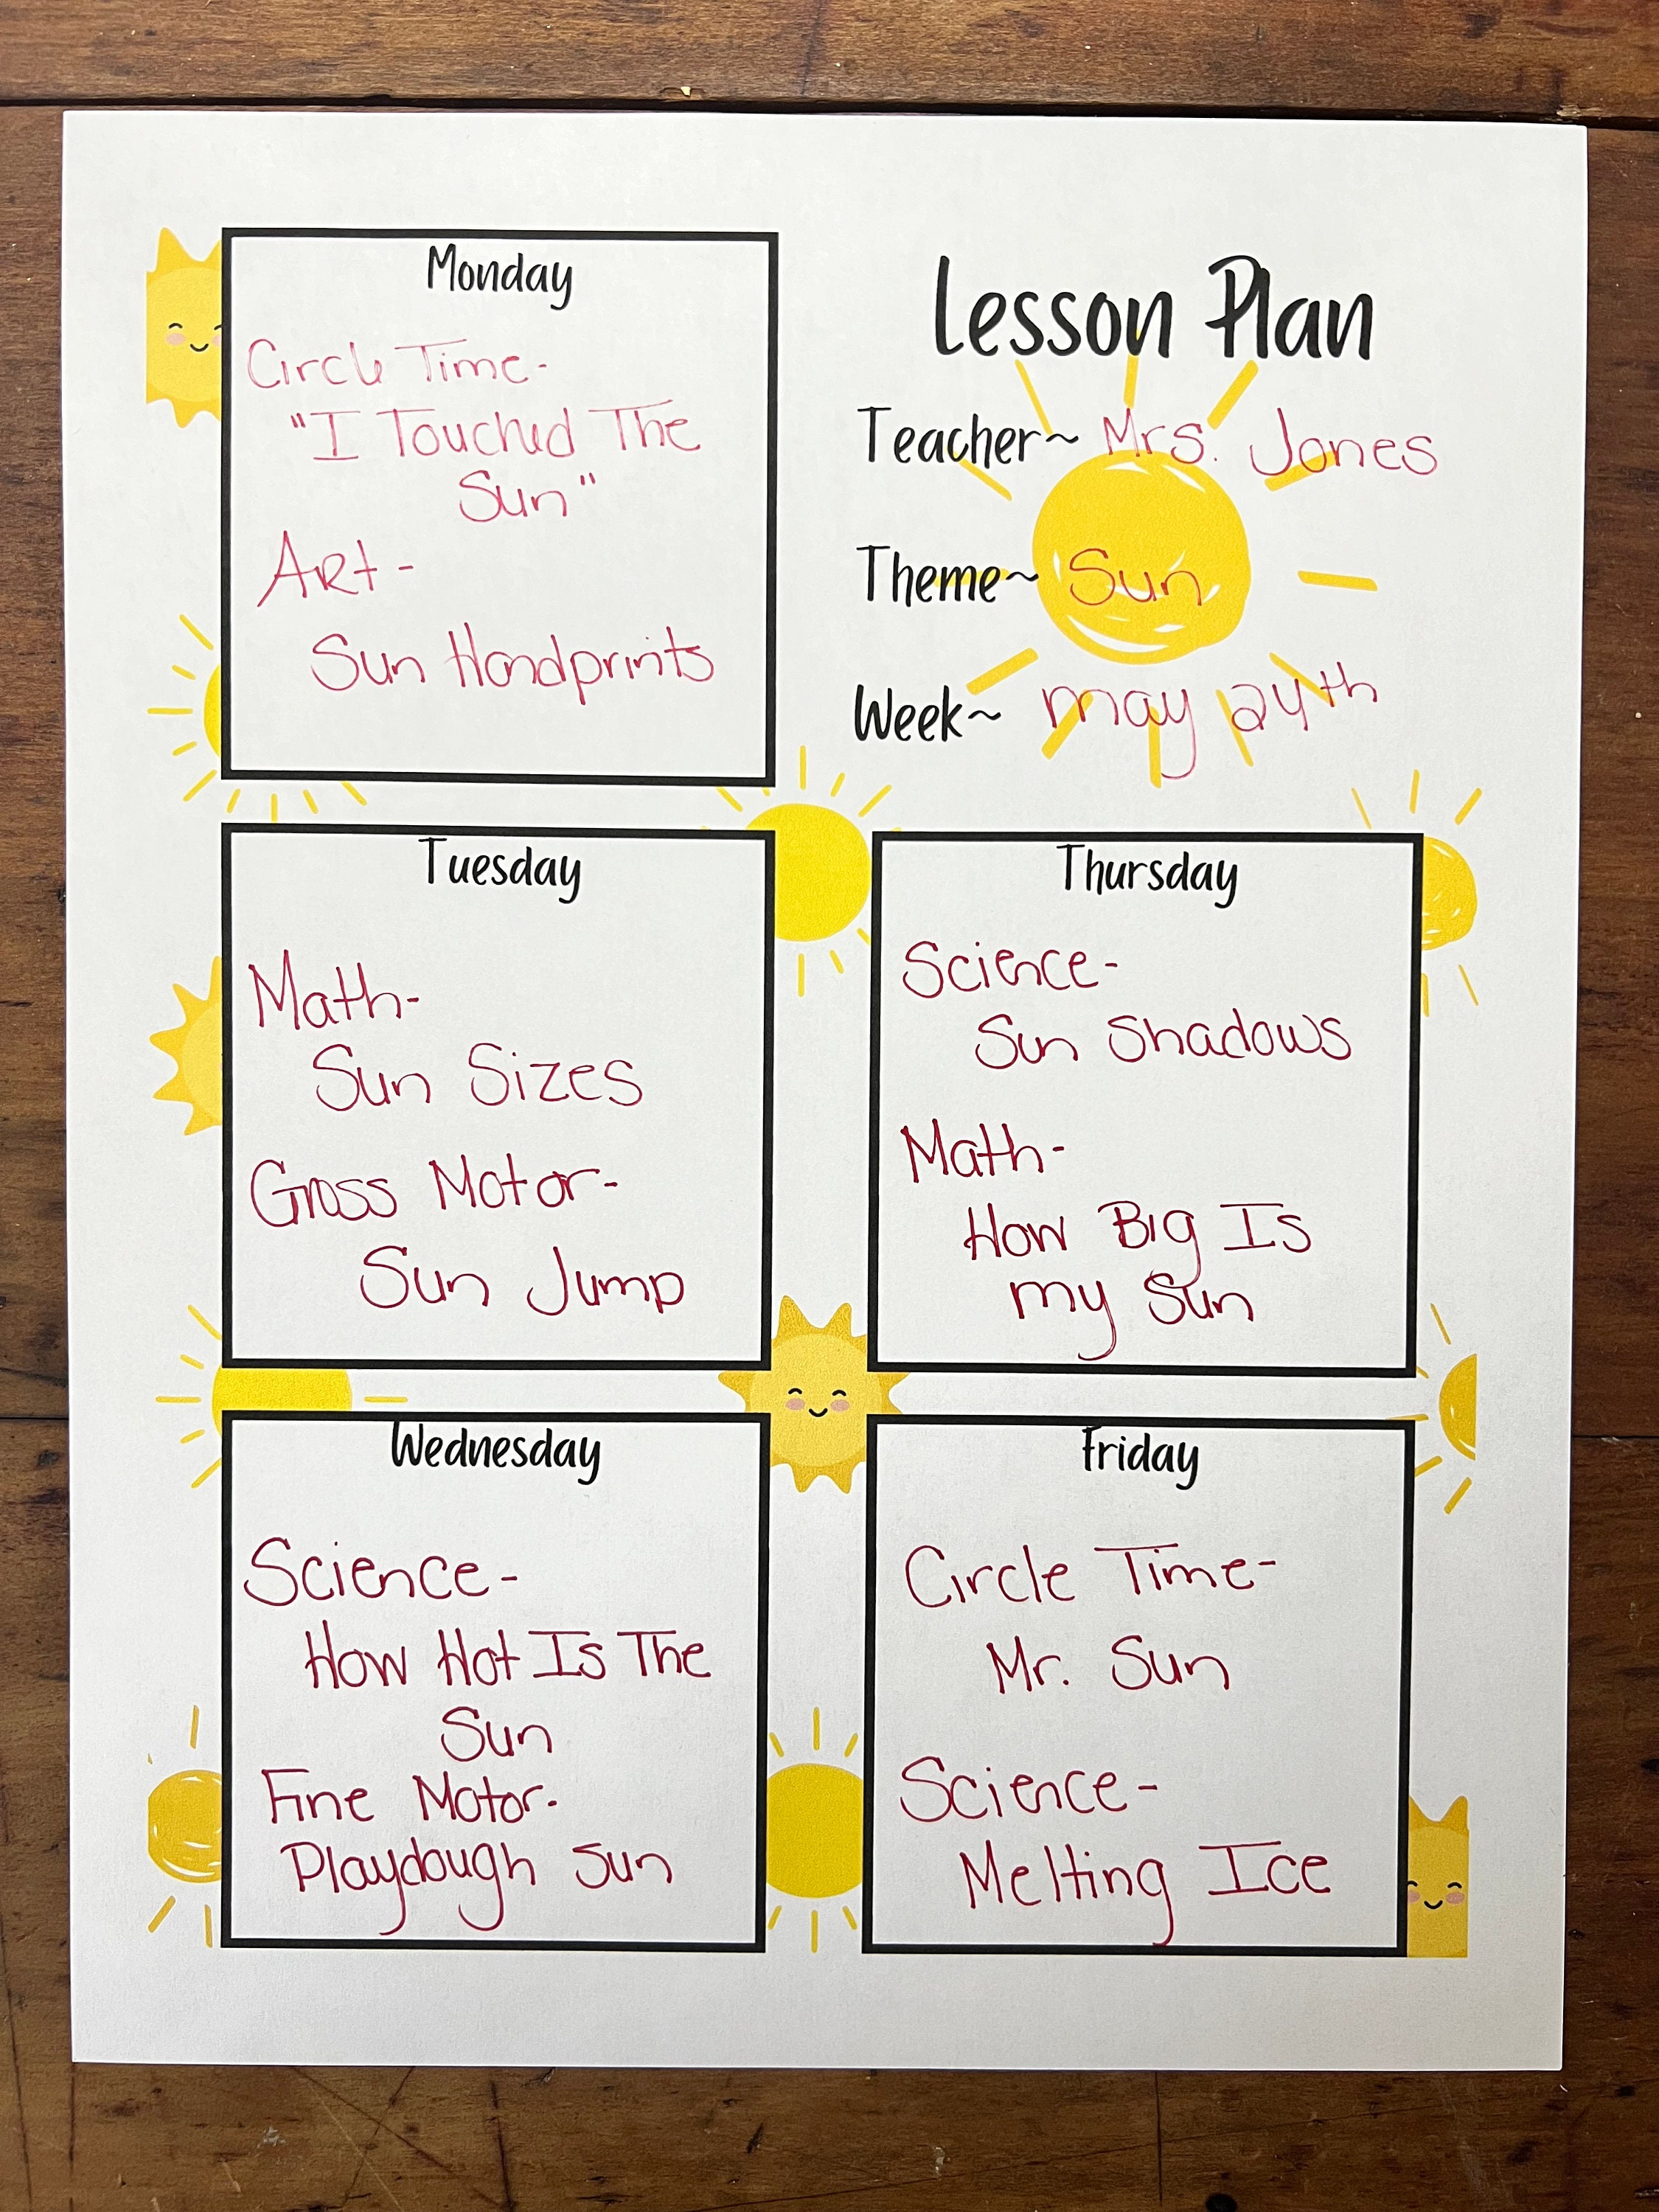 Lesson Plan
Teacher~ Mrs. Jones
Theme~ Sun
Week~ may 24th
Monday
Circle Time-
"I Touched The
Sun"
Art-
Sun Handprints
Tuesday
Math-
Sun Sizes
Gross Motor-
Sun Jump
Wednesday
Science-
How Hot Is The
Sun
Fine Motor-
Playdough Sun
Thursday
Science-
Sun Shadows
Math-
How Big Is
my Sun
Friday
Circle Time-
Mr. Sun
Science-
Melting Ice